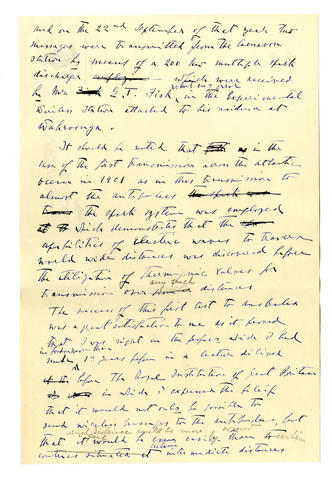 and on the 22nd September of that year two
messages were transmitted from the Carnarvon
station by means of a 200 kw multiple spark
discharger which were received
by Mr E. T. Fisk in the Experimental
Wireless Station attached to his residence at
Wahroonga.
It should be noted that as in the
case of the first transmission across the atlantic
ocean in 1901 as in this transmission to
almost the antipodes
the spark system was employed
which demonstrates that the
capabilities of electric waves to traverse
world wide distances was discovered before
the utilization of thermionic valves for
transmission over any such distances
The success of this first test to Australia
was a great satisfaction to me as it proved
that I was right in the paper which I had
made years before in a lecture delivered
before the Royal Institution of Great Britain
in which I expressed the belief
that it would not only be possible to
send wireless messages to the antipodes, but
that it would be easily than to certain
countries situated at intermediate distances